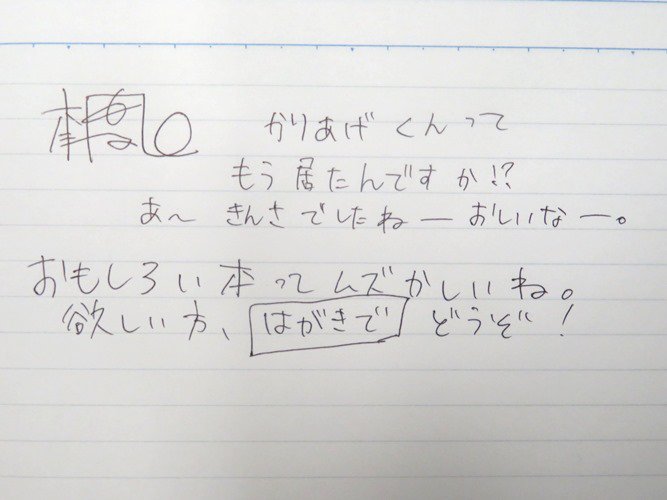 かりあげくんって
もう居たんですか!?
あ〜 きんさでしたねー おしいなー。
おもしろい本ってムズかしいね。
欲しい方、はがきで どうぞ!